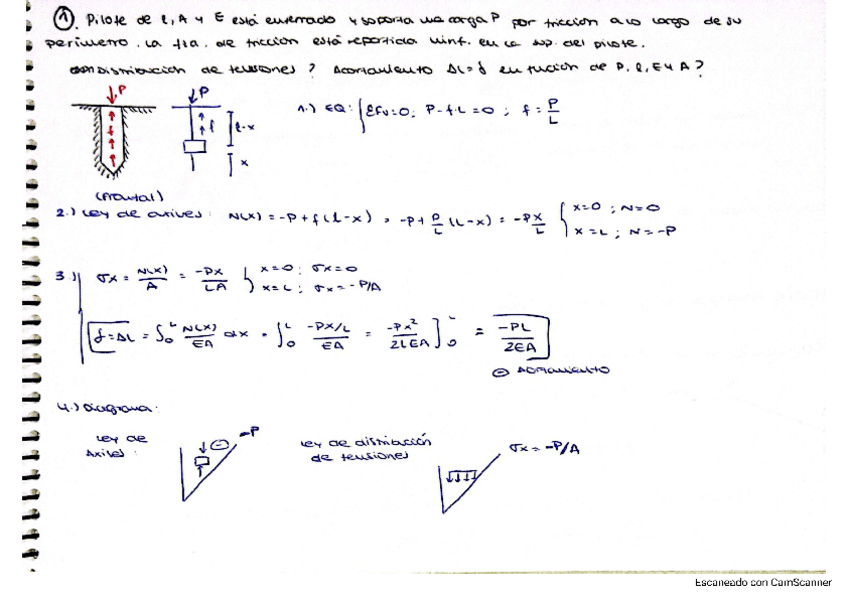 ① Pilote de l, A y E está enterrado y soporta una carga P por fricción a lo largo de su
perímetro. La fza. de fricción está repartida unif. en la sup. del pilote.
Distribución de tensiones? Acortamiento ΔL=δ en función de P, l, E y A?
P
P
f
f
l-x
x
(Frontal)
1.) EQ: { ΣFv=0; P-f·L=0; f = P/L
2.) Ley de axiles: N(x) = -P+f(l-x) = -P+P/L(L-x) = -Px/L { x=0; N=0
x=L; N=-P
3.) σx = N(x)/A = -Px/LA { x=0; σx=0
x=L; σx=-P/A
δ=ΔL = ∫₀ᴸ N(x)/EA dx = ∫₀ᴸ -Px/L/EA = -Px²/2LEA ]₀ᴸ = -PL/2EA
⊖ Acortamiento
4.) Diagrama:
Ley de
Axiles:
⊖
-P
Ley de distribución
de tensiones
σx=-P/A
Escaneado con CamScanner